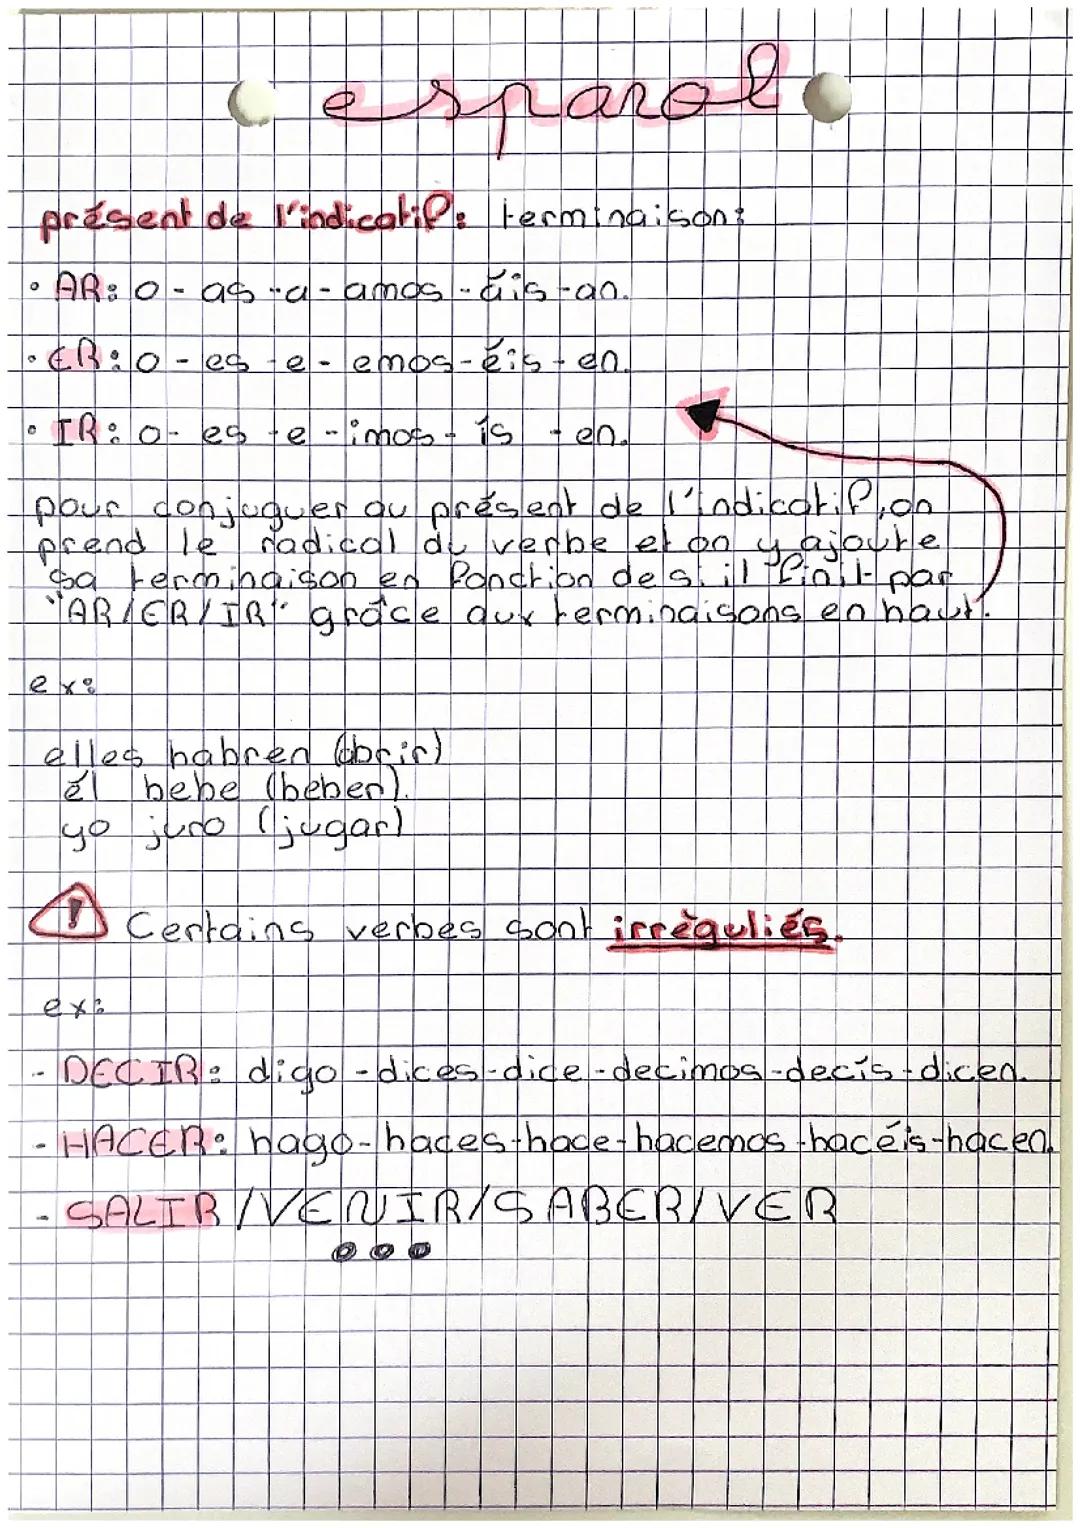 esparol
présent de l'indicatif: terminaison:
• AR: o - as - a - amos - áis - an.
• ER: o - es - e - emos - éis - en.
• IR: o - es - e - imos - ís - en.
pour conjuguer au présent de l'indicatif, on
prend le radical du verbe et on y ajoute
sa terminaison en fonction de s'il finit par
"AR/ER/IR" grâce aux terminaisons en haut.
ex:
elles habren (abrir)
él bebe (beber).
yo juro (jugar)
! Certains verbes sont irréguliés.
ex:
- DECIR: digo - dices - dice - decimos - decís - dicen.
- HACER: hago - haces - hace - hacemos - hacéis - hacen.
- SALIR / VENIR / SABER / VER
...